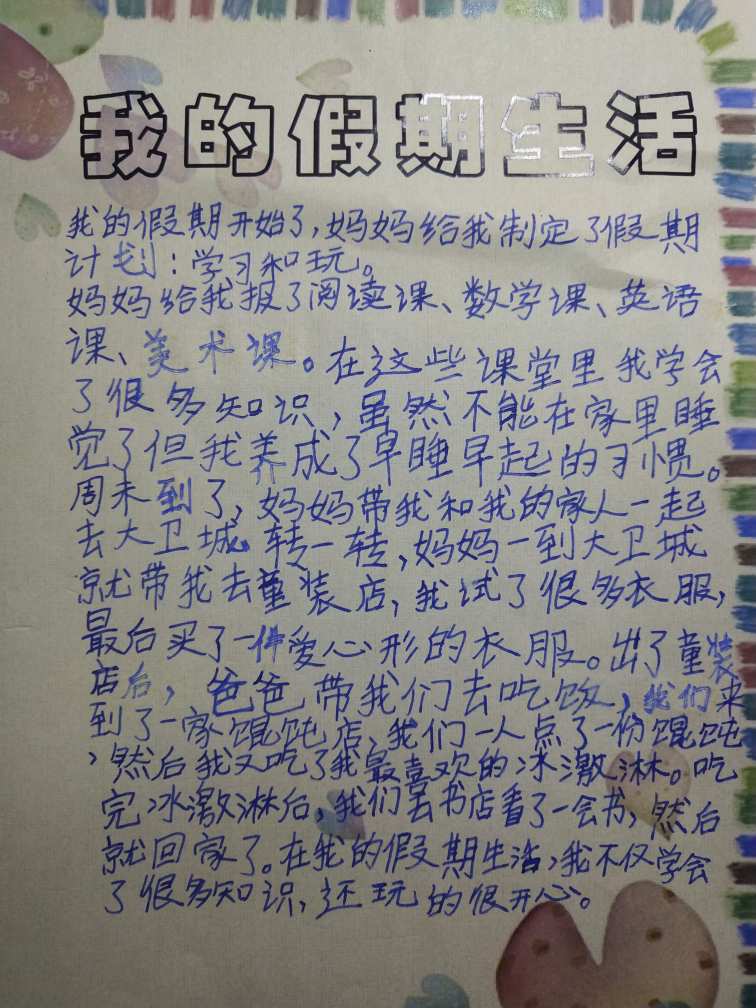 我的假期生活
我的假期开始了,妈妈给我制定了假期
计划:学习和玩。
妈妈给我报了阅读课、数学课、英语
课、美术课。在这些课堂里我学会
了很多知识,虽然不能在家里睡
觉了但我养成了早睡早起的习惯。
周末到了,妈妈带我和我的家人一起
去大卫城转一转,妈妈一到大卫城
就带我去童装店,我试了很多衣服,
最后买了一件爱心形的衣服。出了童装
店后,爸爸带我们去吃饭,我们来
到了一家馄饨店,我们一人点了一份馄饨
,然后我又吃了我最喜欢的冰激淋。吃
完冰激淋后,我们去书店看了一会书,然后
就回家了。在我的假期生活,我不仅学会
了很多知识,还玩的很开心。